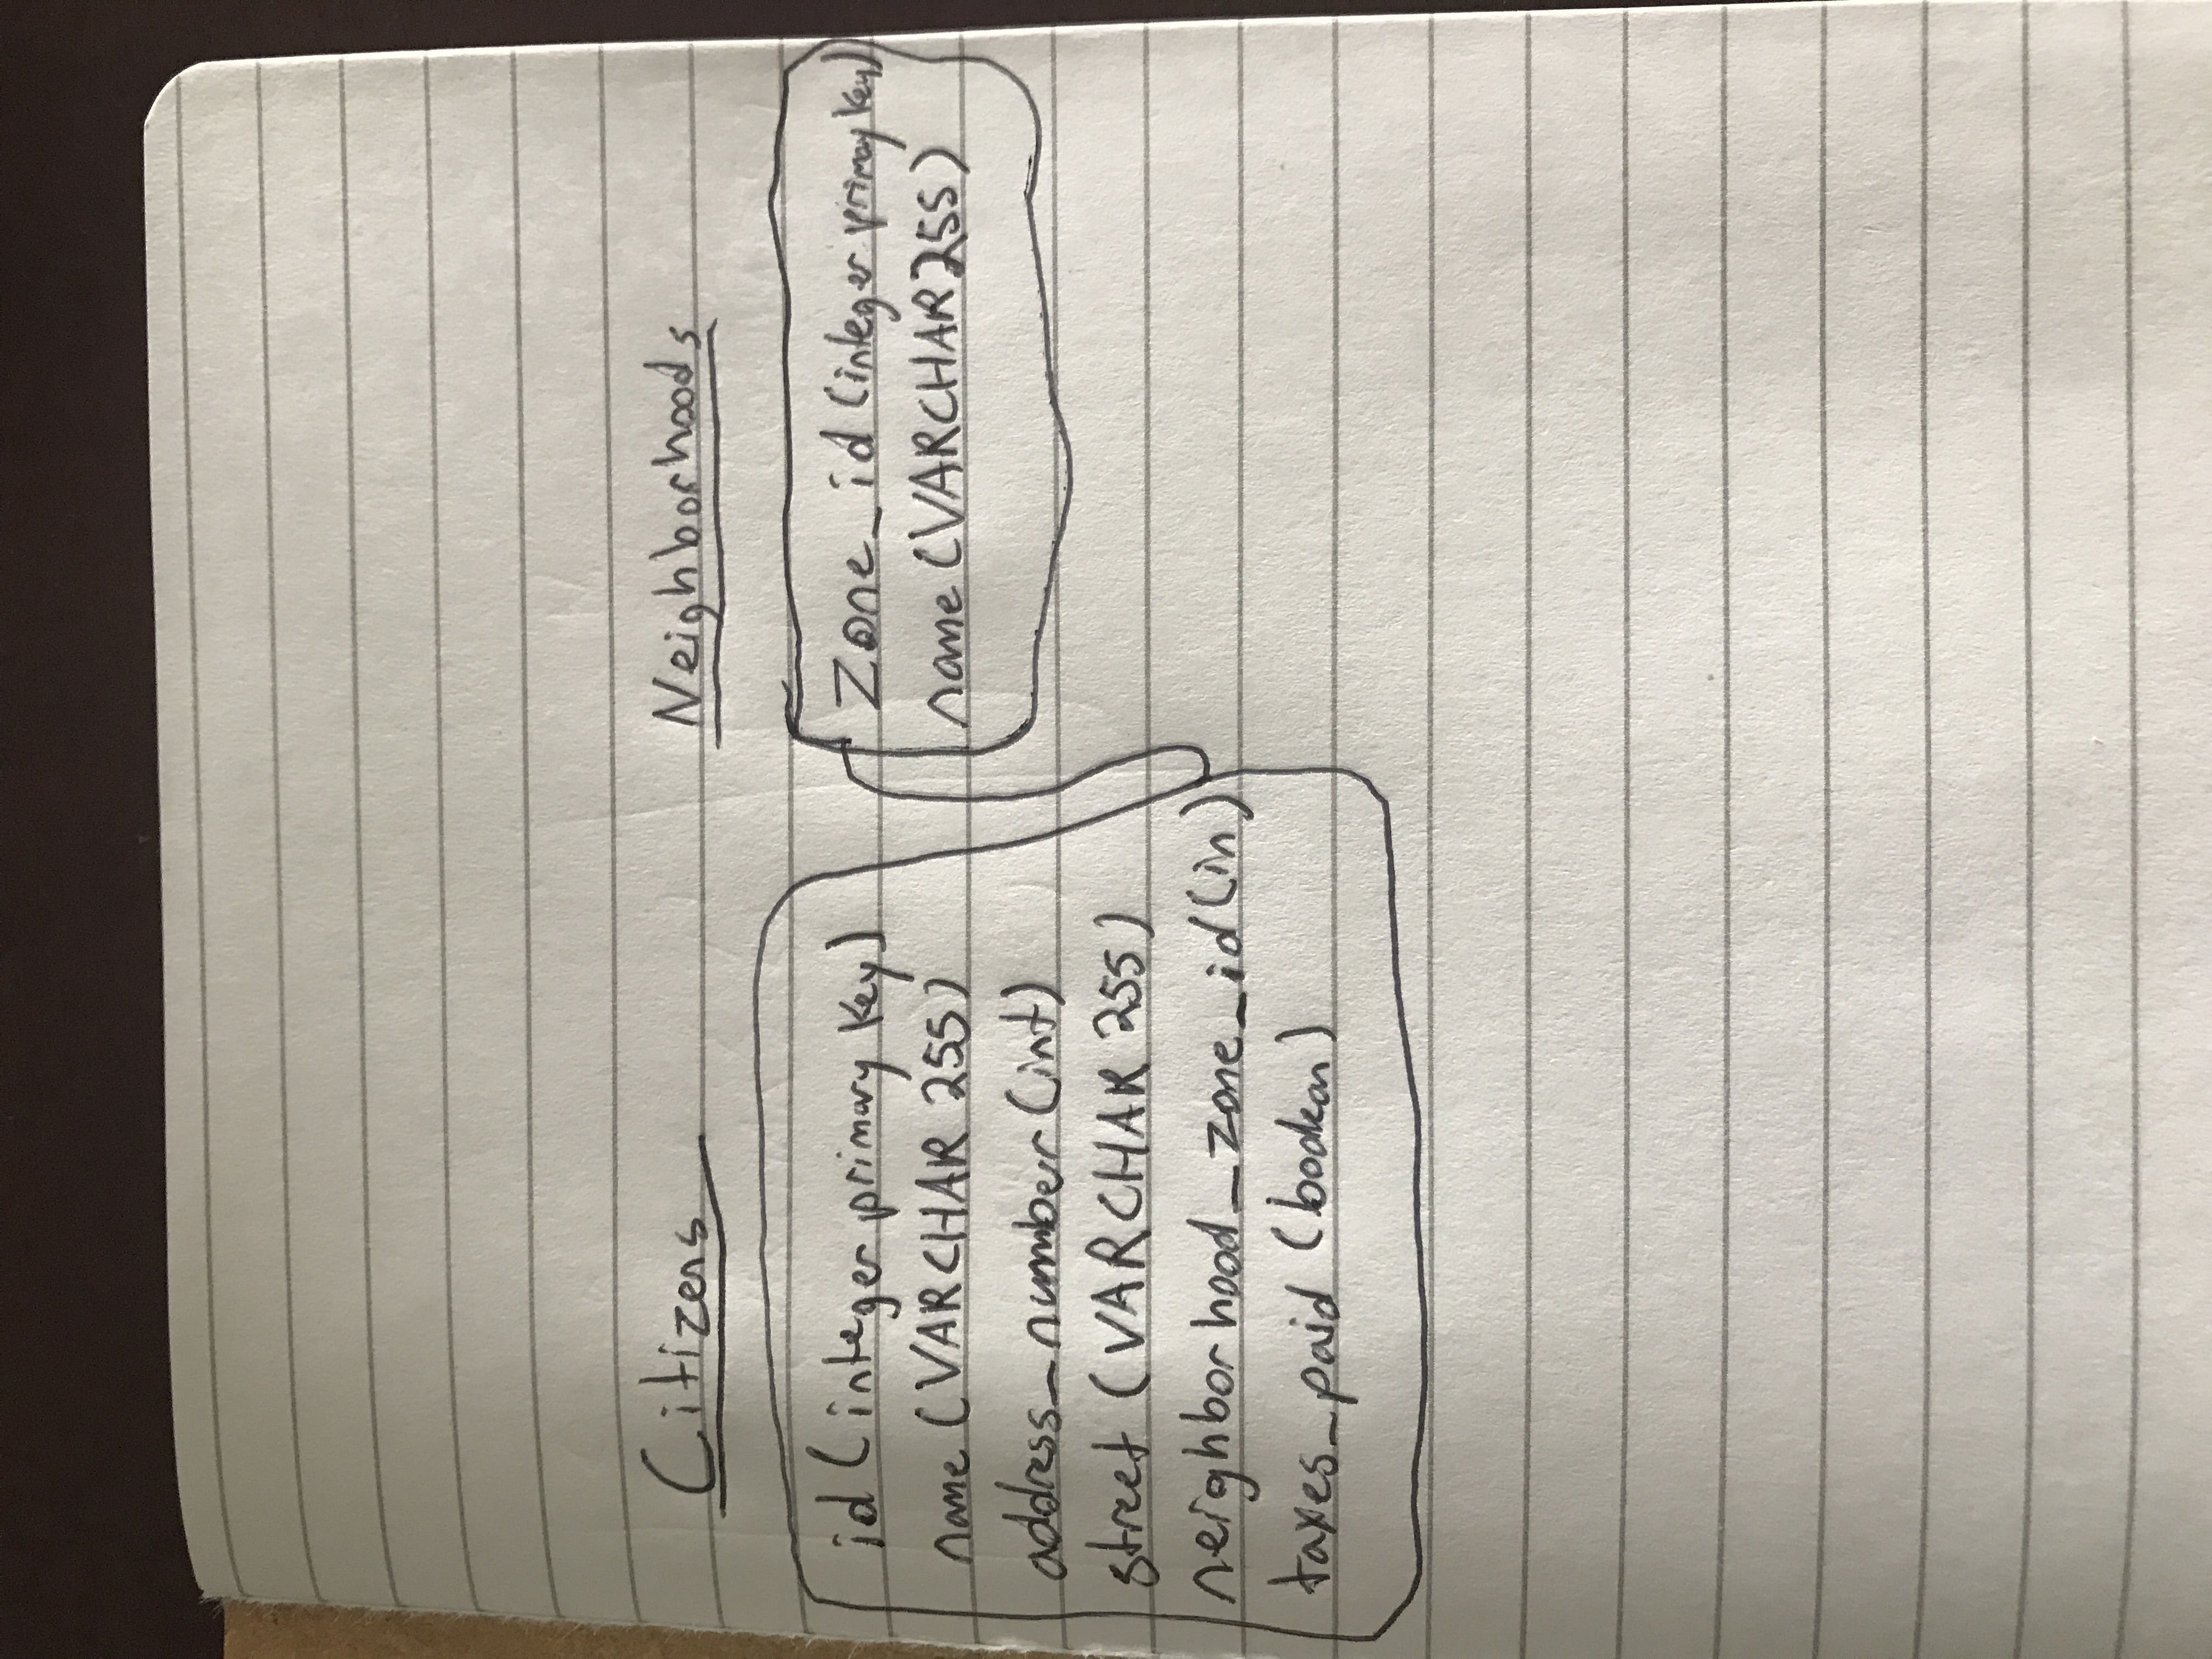 Citizens
id (integer primary key)
name (VARCHAR 255)
address_number (int)
street (VARCHAR 255)
neighborhood_zone_id (in)
taxes_paid (boolean)
Neighborhoods
zone_id (integer primary key)
name (VARCHAR 255)